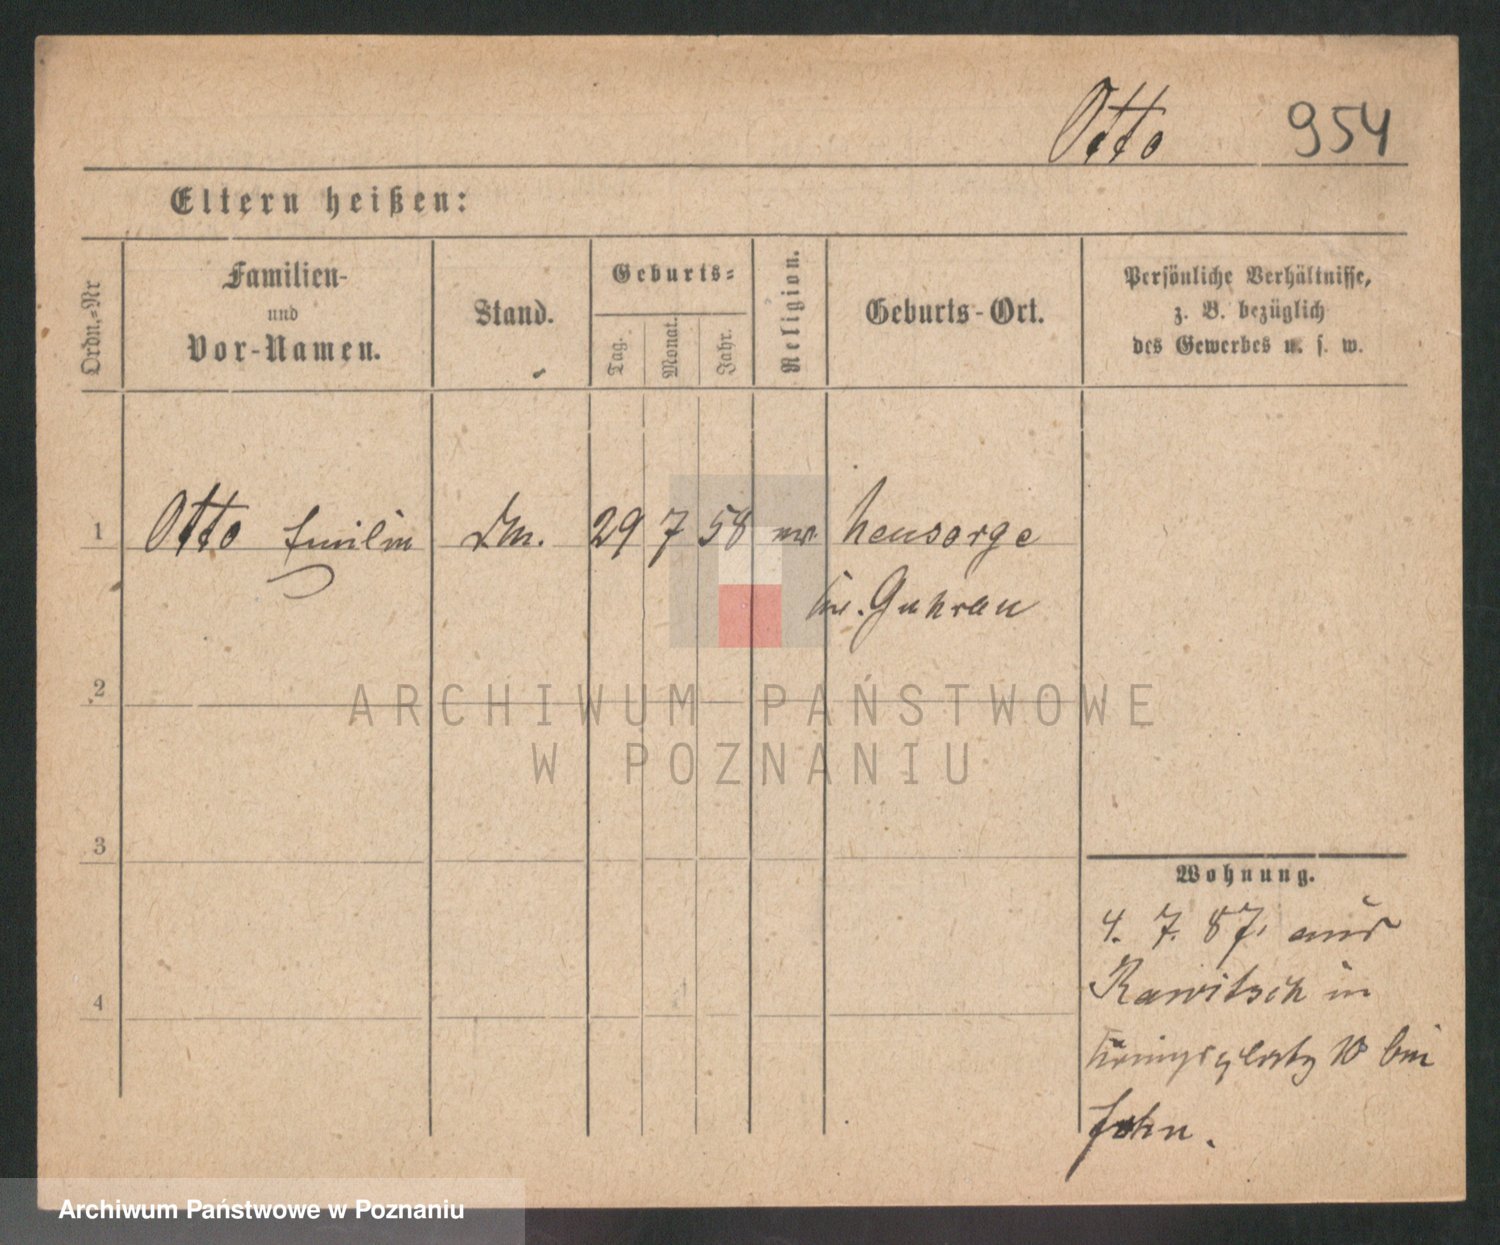 Otto 954
Eltern heißen:
Ordn.-Nr
Familien-
und
Vor-Namen.
Stand.
Geburts-
Tag.
Monat.
Jahr.
Religion.
Geburts-Ort.
Persönliche Verhältnisse,
z. B. bezüglich
des Gewerbes u. s. w.
1 Otto Emilie 29 7 58 Heusorge
Kr. Guhrau
2
ARCHIWUM PAŃSTWOWE
W POZNANIU
3
4
Wohnung.
4. 7. 87. aus
Rawitsch in
Königsplatz 10 bei
Archiwum Państwowe w Poznaniu